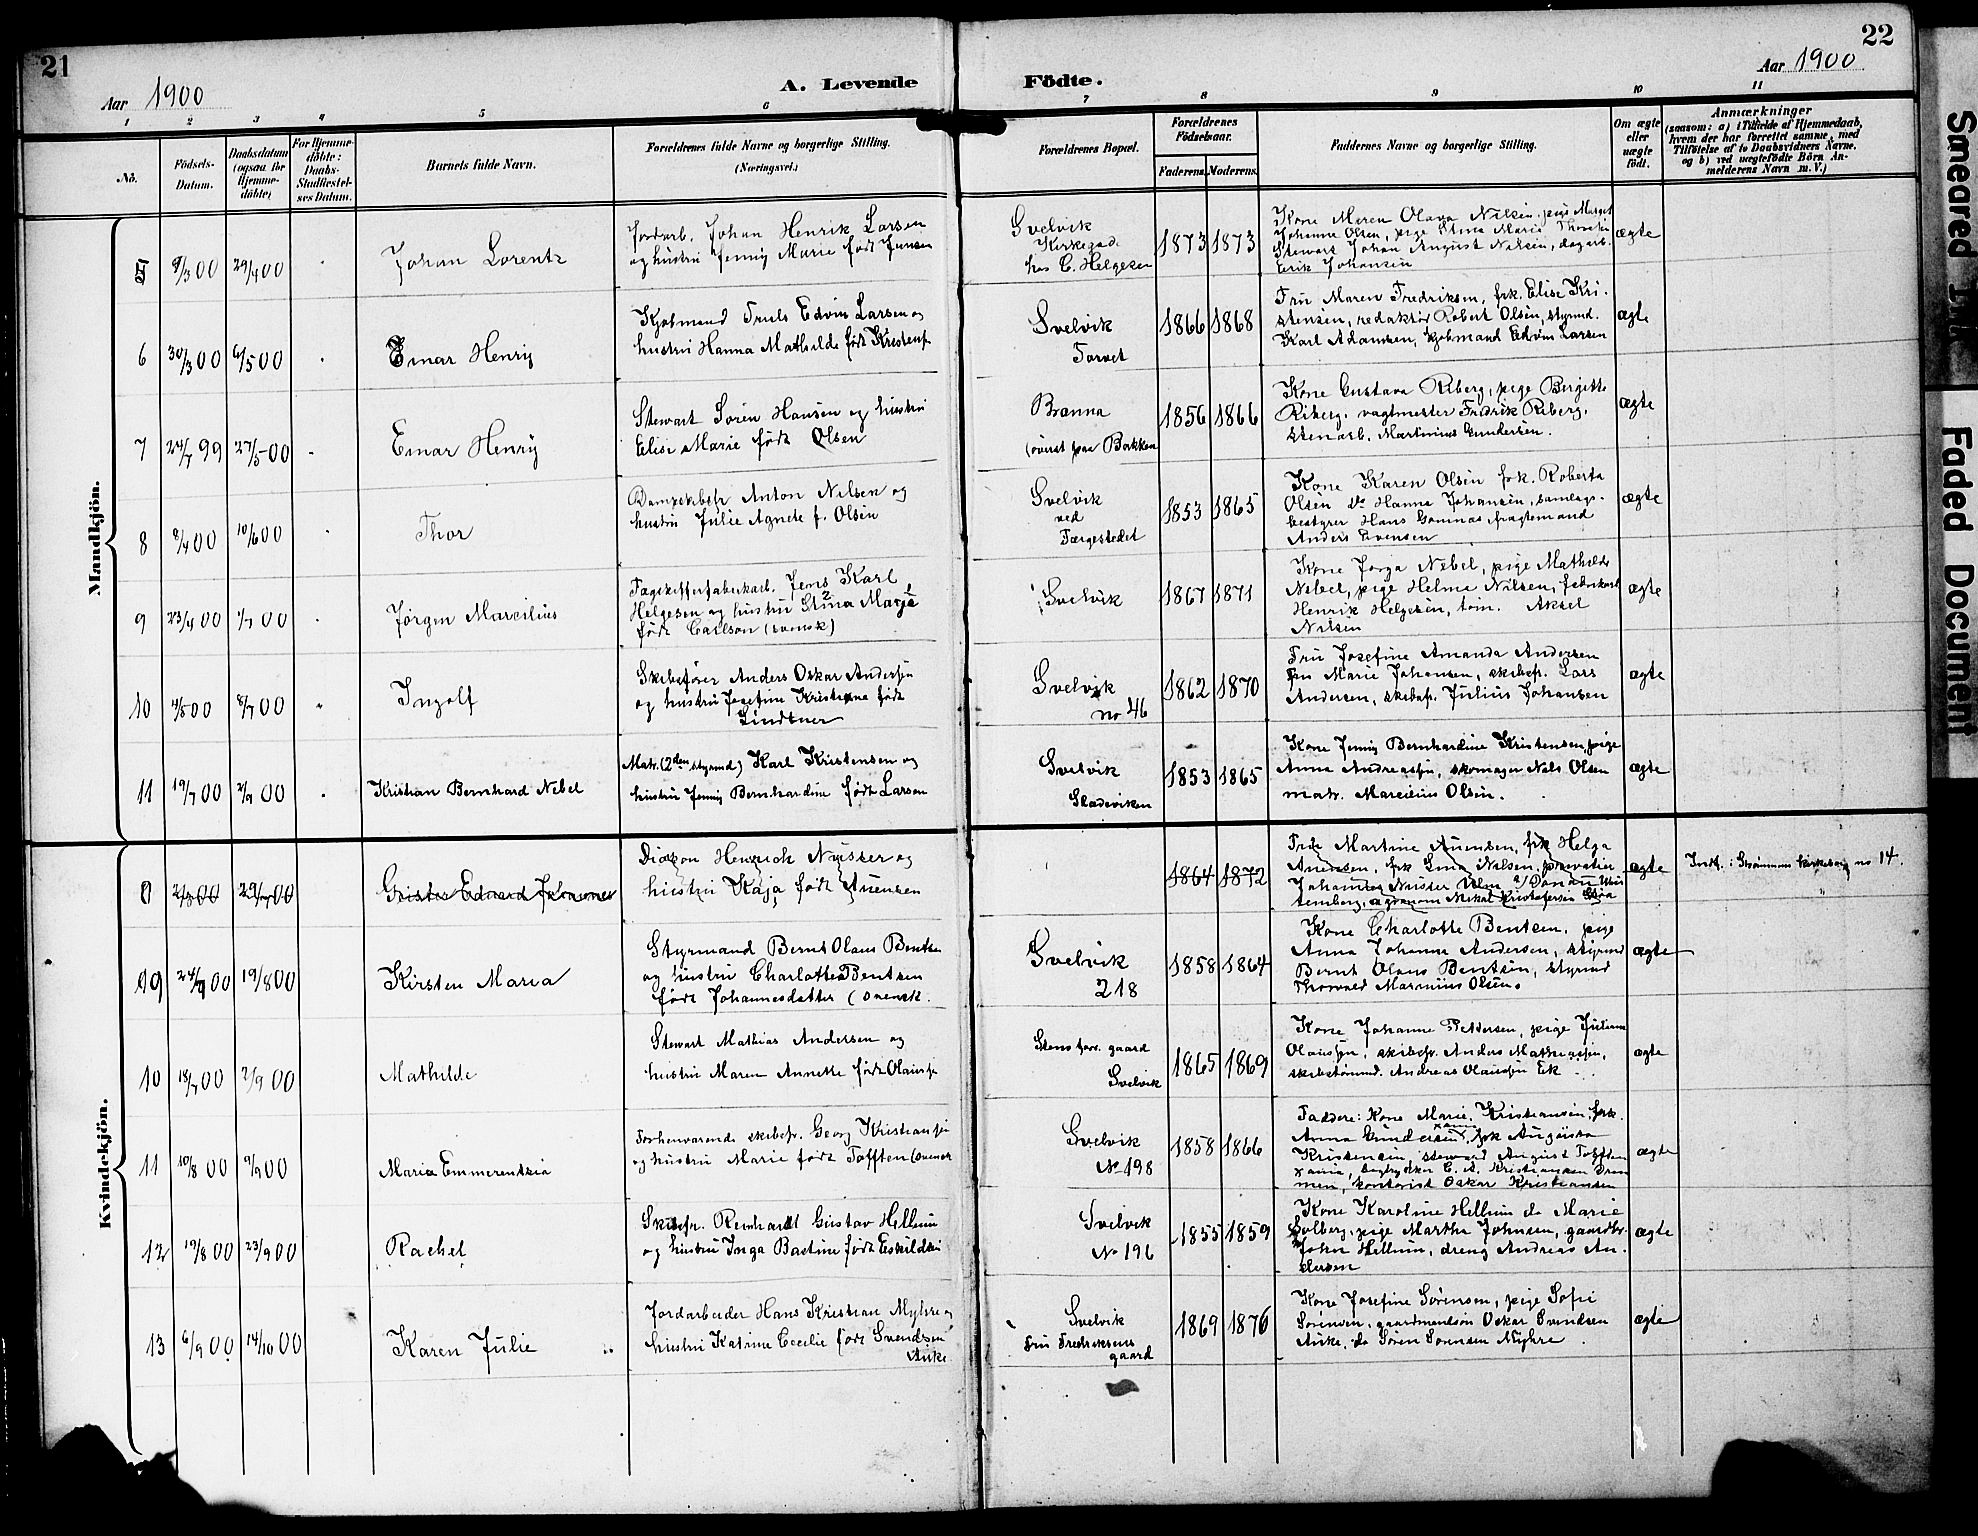 21
22
Aar 1900
A. Levende Födte.
Aar 1900
1 2 3 4 5 6 7 8 9 10 11
Nò.
Födsels-
Datum.
Daabsdatum
(ogsaa for
Hjemme-
döbte)
For Hjemme-
döbte:
Daabs-
Stadfæstel-
ses Datum.
Barnets fulde Navn.
Forældrenes fulde Navne og borgerlige Stilling.
(Næringsvei.)
Forældrenes Bopæl.
Forældrenes
Födselsaar.
Faderens. Moderens.
Faddernes Navne og borgerlige Stilling.
Om ægte
eller
uægte
födt.
Anmærkninger
(saasom: a) i Tilfælde af Hjemmedaab,
hvem der har forrettet samme, med
Tilföielse af to Daabsvidners Navne,
og b) ved uægtefödte Börn An-
melderens Navn m. V.)
Mandkjön.
5 9/3 00 29/4 00
Johan Lorentz
Jordarb. Johan Henrik Larsen
og hustru Jenny Marie født Jensen
Svelvik
Kirkegad.
hos C. Helgesen
1873 1873
Kone Maren Olava Nilsen, pige Marget
Johanne Olsen, pige Stina Marie
Stewart Johan August Nilsen, dagarb.
Erik Johansen
ægte
6 30/3 00 6/5 00
Einar Henry
Kjøbmand Truls Edvin Larsen og
hustru Hanna Mathilde født Kristens.
Svelvik
Torvet
1866 1868
Fru Maren Fredriksen, frk. Elise Kri-
stensen, redaktør Robert Olsen, styrmd.
Karl Adamsen, kjøbmand Edvin Larsen
ægte
7 24/7 99 27/5 00
Einar Henry
Stewart Søren Hansen og hustru
Elise Marie født Olsen
Branna
(øverst paa Bakken
1856 1866
Kone Gustava Riberg, pige Bergitte
Riberg, vagtmester Fredrik Riberg,
stenarb. Martinius Gundersen.
ægte
8 8/4 00 10/6 00
Thor
Dampskibsfr. Anton Nilsen og
hustru Julie Agnete f. Olsen
Svelvik
ved
Færgestedet
1853 1865
Kone Karen Olsen frk. Roberta
Olsen do Hanna Johansen, samlags-
bestyrer Hans Gomnas, fragtemand
Anders Evensen
ægte
9 23/4 00 1/7 00
Jørgen Marcilius
Jens Karl
Helgesen og hustru Stina Marie
født Carlson (svensk)
Svelvik
1867 1871
Kone Jorga Nebel, pige Mathilde
Nebel, pige Helma Nilsen, fabrikarb
Henrik Helgesen, tøm. Aksel
Nilsen
ægte
10 4/5 00 8/7 00
Ingolf
Skibsfører Anders Oskar Andersen
og hustru Josefine Kristiane født
Lindtner
Svelvik
no 46
1862 1870
Fru Josefine Amanda Andersen
fru Marie Johansen, skibsf. Lars
Andersen, skibsf. Julius Johansen
ægte
11 19/7 00 2/9 00
Kristian Bernhard Nebel
Matr. (2den styrmd) Karl Kristensen og
hustru Jenny Bernhardine født Larsen
Svelvik
Sladeviken
1853 1865
Kone Jenny Bernhardine Kristensen, pige
Anna Andreassen, skomager Nels Olsen
matr. Marcilius Olsen.
ægte
Kvindekjön.
29/7 00
Edvard Johannes
Diakon Henrich Nüsser og
hustru Kaja født Auensen
1864 1872
Martine Auensen, frk Helga
Auensen, frk Nilsen, privatier
Johannes Nüsser
ægte
Indf. i Strømmens kirkebog no 14.
9 24/4 00 19/8 00
Kirsten Maria
Styrmand Bernt Olaus Bentsen
og hustru Charlotte Bentsen
født Johannesdatter (svensk.
Svelvik
218
1858 1864
Kone Charlotte Bentsen, pige
Anna Johanne Andersen, styrmd
Bernt Olaus Bentsen, styrmd
Thorvald Marinius Olsen.
ægte
10 18/7 00 2/9 00
Mathilde
Stewart Mathias Andersen og
hustru Maren Annette født Olaussen
gaard
Svelvik
1865 1869
Kone Johanne Pettersen, pige Juliane
Olaussen, skibsfr. Anders Mathiassen,
skibstømmd. Andreas Olaussen Eik
ægte
11 10/8 00 9/9 00
Maria Emmerentzia
Forhenværende skibsfr. Georg Kristiansen
og hustru Marie født Tofften (svensk
Svelvik
No 198
1858 1866
Faddere: Kone Marie Kristiansen, frk.
Anna Gundersen xania, frk Augusta
Kristensen, steward August Tofften
xania, bogtrykker C. A. Kristiansen Dram
men, kontorist Oskar Kristiansen
ægte
12 19/8 00 23/9 00
Rachel
Skibsfr. Reinhardt Gustav Hellum
og hustru Inga Bastine født Eskildsen
Svelvik
No 196
1855 1859
Kone Karoline Hellum do Marie
Solberg, pige Martha Johnsen, gaardbr.
John Hellum, dreng Andreas An-
dersen
ægte
13 6/9 00 14/10 00
Karen Julie
Jordarbeider Hans Kristian Myhre og
hustru Katrine Cecilie født Svendsen
Auke
Svelvik
Fru Fredriksens
gaard
1869 1876
Kone Josefine Sørensen, pige Sofi
Sørensen, gaardmandsøn Oskar Svendsen
Auke, do Søren Sørensen Myhre.
ægte
Smeared Ink
Faded Document